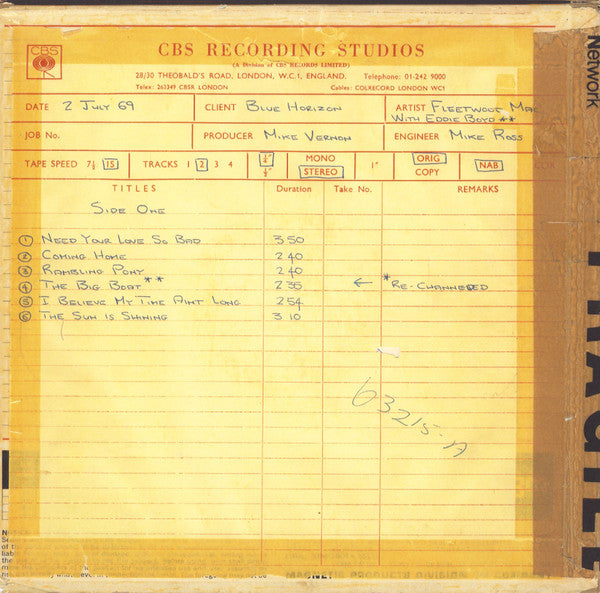 CBS
CBS RECORDING STUDIOS
(A Division of CBS RECORDS LIMITED)
28/30 THEOBALD'S ROAD, LONDON, W.C.1, ENGLAND. Telephone: 01-242 9000
Telex: 263349 CBSR LONDON Cables: COLRECORD LONDON WC1
DATE 2 JULY 69 CLIENT BLUE HORIZON ARTIST FLEETWOOD MAC
WITH EDDIE BOYD **
JOB No. PRODUCER MIKE VERNON ENGINEER MIKE ROSS
TAPE SPEED 7½ 15 TRACKS 1 2 3 4 ¼" ½" MONO STEREO 1" ORIG COPY NAB
TITLES Duration Take No. REMARKS
SIDE ONE
1 NEED YOUR LOVE SO BAD 3 50
2 COMING HOME 2 40
3 RAMBLING PONY 2 40
4 THE BIG BOAT ** 2 35 ← *RE-CHANNELED
5 I BELIEVE MY TIME AINT LONG 2 54
6 THE SUN IS SHINING 3 10
63215-A
Network